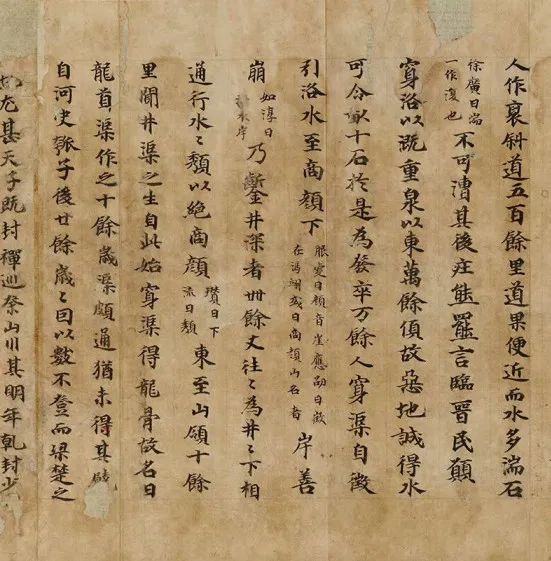 人作褒斜道五百餘里道果便近而水多湍石
徐廣曰湍一作復也不可漕其後庄熊羆言臨晉民願
穿洛以溉重泉以東萬餘頃故惡地誠得水
可令畒十石於是為發卒万餘人穿渠自徵
引洛水至商顔下服虔曰顔音崖應劭曰徵在馮翊或曰商顔山名者岸善
崩如淳曰水岸乃鑿井深者卌餘丈往〻為井〻下相
通行水〻頹以絶商顔瓚曰下流曰頹東至山領十餘
里閒井渠之生自此始穿渠得龍骨故名曰
龍首渠作之十餘歳渠頗通猶未得其饒
自河决瓠子後廿餘歳〻因以數不登而梁楚之
地尤甚天子既封禪巡祭山川其明年乹封少